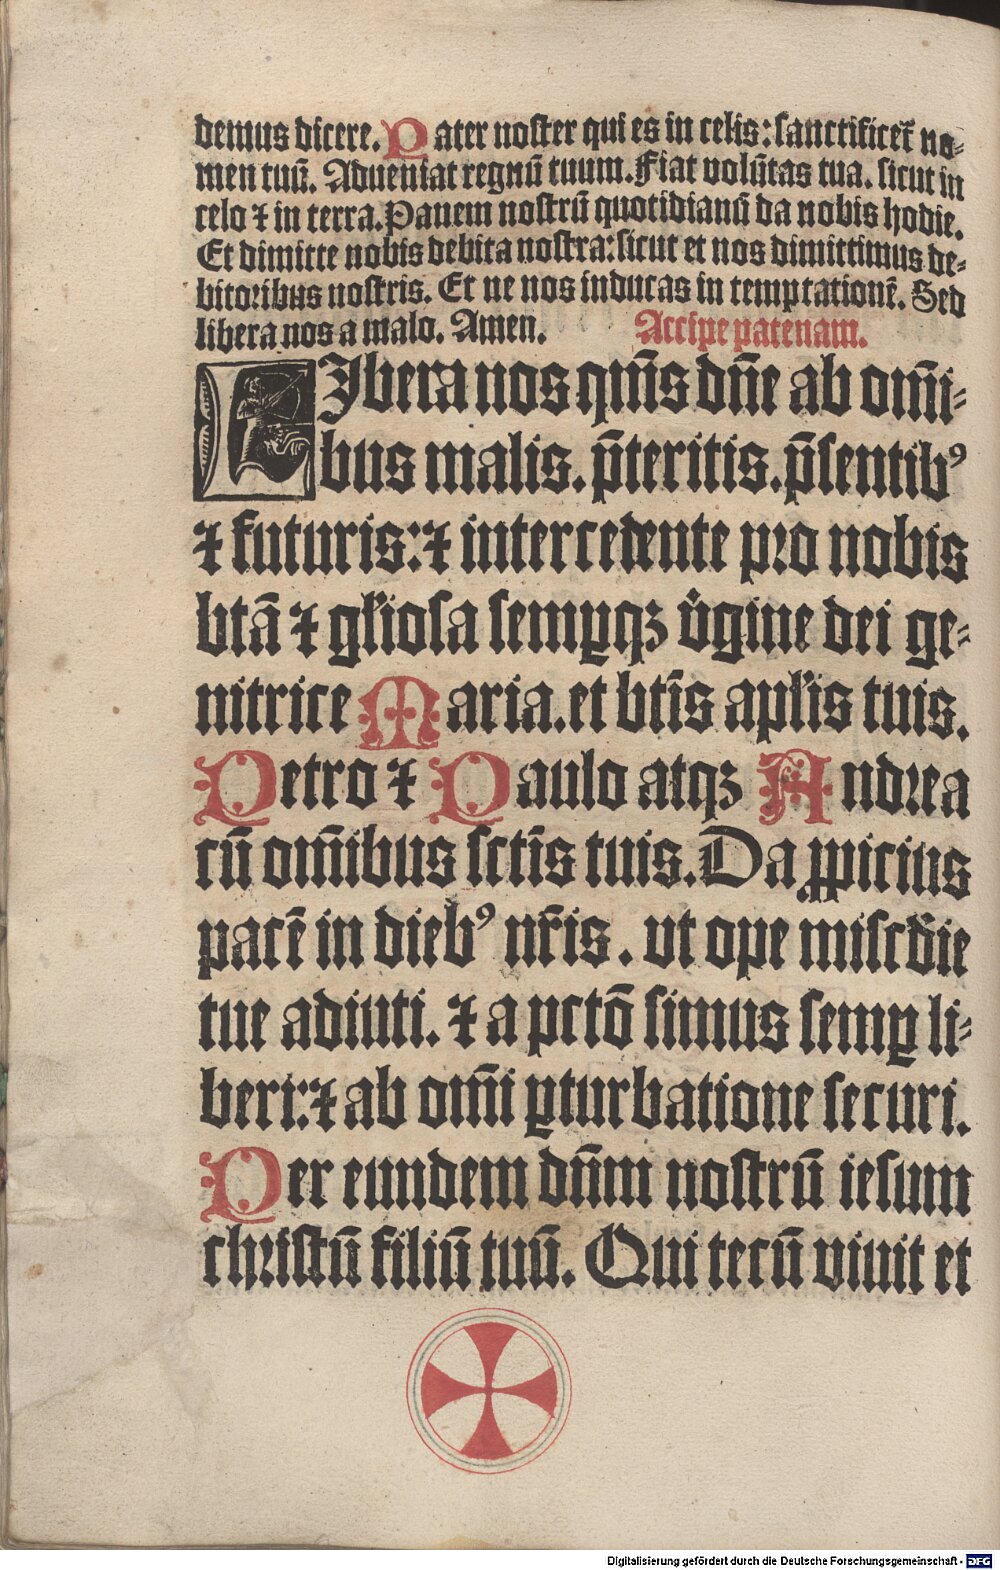 demus dicere. Pater noster qui es in celis: sanctificet̄ no⸗
men tuū. Adueniat regnū tuum. Fiat volūtas tua. sicut in
celo ⁊ in terra. Panem nostrū quotidianū da nobis hodie.
Et dimitte nobis debita nostra: sicut et nos dimittimus de⸗
bitoribus nostris. Et ne nos inducas in temptationē. Sed
libera nos a malo. Amen. Accipe patenam.
LJbera nos qm̄s dn̄e ab om̄i⸗
bus malis. p̄teritis. p̄sentibꝰ
⁊ futuris: ⁊ intercedente pro nobis
btā ⁊ gl'iosa semꝑqꝫ v̓gine dei ge⸗
nitrice Maria. et bt̄is apl'is tuis.
Petro ⁊ Paulo atqꝫ Andrea
cū om̄ibus sct̄is tuis. Da ꝓpicius
pacē in diebꝰ nr̄is. vt ope misc̄die
tue adiuti. ⁊ a pctō simus semꝑ li⸗
beri: ⁊ ab om̄i ꝑturbatione securi.
Per eundem dn̄m nostrū iesum
christū filiū tuū. Qui tecū viuit et
Digitalisierung gefördert durch die Deutsche Forschungsgemeinschaft - DFG